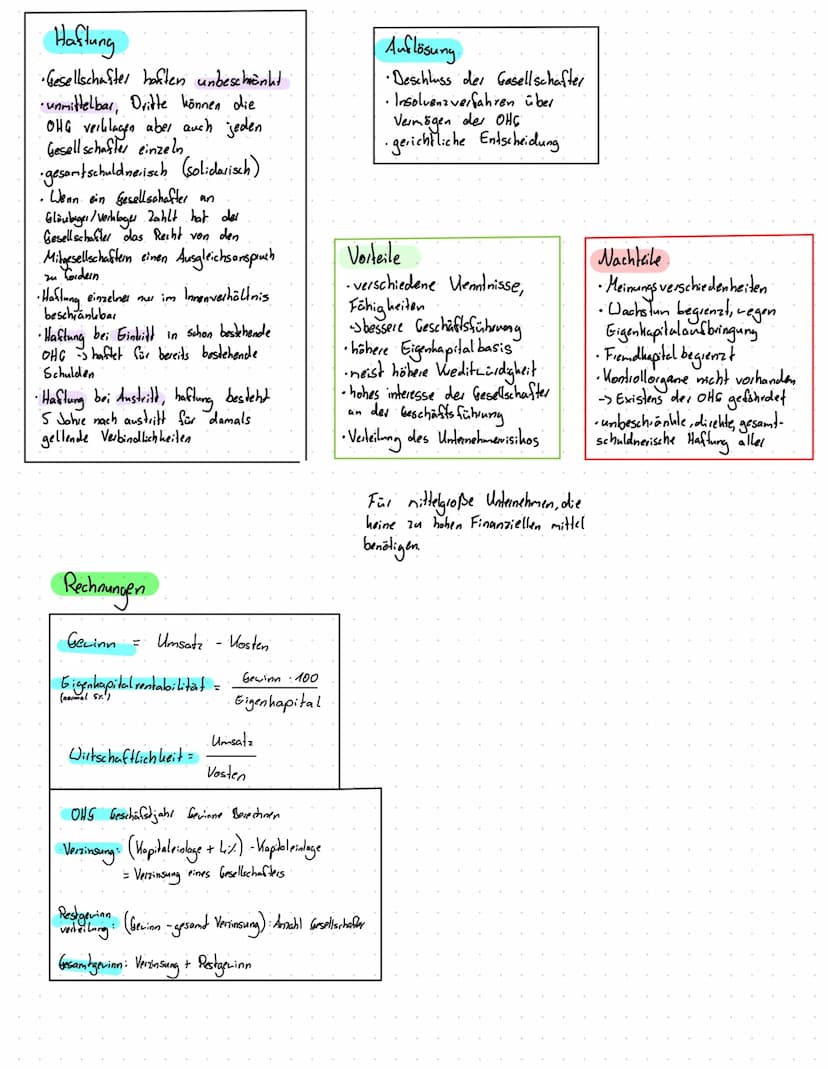 Haftung
· Gesellschafter haften unbeschränkt
· unmittelbar, Dritte können die
OHG verklagen aber auch jeden
Gesellschafter einzeln
· gesamtschuldnerisch (solidarisch)
· Wenn ein Gesellschafter an
Gläubiger/Verkläger zahlt hat der
Gesellschafter das Recht von den
Mitgesellschaftern einen Ausgleichsanspruch
zu fordern
· Haftung einzelner nur im Innenverhältnis
beschränkbar
· Haftung bei Eintritt in schon bestehende
OHG -> haftet für bereits bestehende
Schulden
· Haftung bei Austritt, haftung besteht
5 Jahre nach austritt für damals
geltende Verbindlichkeiten
Auflösung
· Beschluss der Gesellschafter
· Insolvenzverfahren über
Vermögen der OHG
· gerichtliche Entscheidung
Vorteile
· verschiedene Kenntnisse,
Fähigkeiten
-> bessere Geschäftsführung
· höhere Eigenkapitalbasis
· meist höhere Kreditwürdigkeit
· hohes interesse der Gesellschafter
an der Geschäftsführung
· Verteilung des Unternehmerrisikos
Nachteile
· Meinungsverschiedenheiten
· Wachstum begrenzt, wegen
Eigenkapitalaufbringung
· Fremdkapital begrenzt
· Kontrollorgane nicht vorhanden
-> Existens der OHG gefährdet
· unbeschränkte, direkte, gesamt-
schuldnerische Haftung aller
Für mittelgroße Unternehmen, die
keine zu hohen Finanziellen mittel
benötigen.
Rechnungen
Gewinn = Umsatz - Kosten
Eigenkapitalrentabilität = Gewinn · 100
(normal 5%)
Eigenkapital
Wirtschaftlichkeit = Umsatz
Kosten
OHG Geschäftsjahr Gewinne Berechnen
Verzinsung: (Kapitaleinlage + 4%) - Kapitaleinlage
= Verzinsung eines Gesellschafters
Restgewinn
verteilung: (Gewinn - gesamt Verzinsung) : Anzahl Gesellschafter
Gesamtgewinn: Verzinsung + Restgewinn